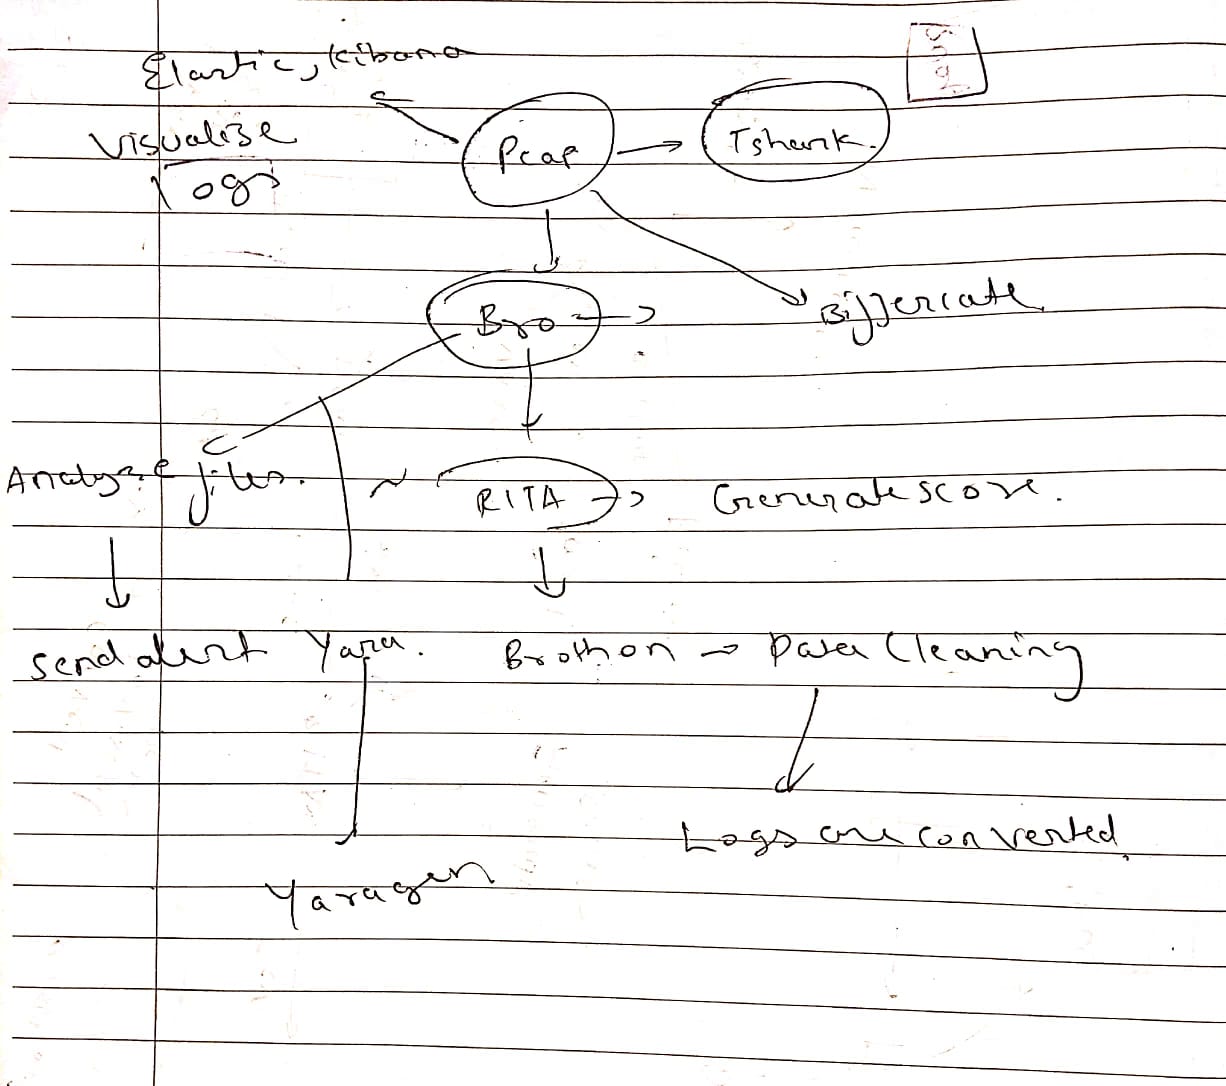 Elastic, Kibana
Visualise
logs
Pcap
Tshark.
Bro
Biffercate
Analyze files.
RITA
Generate score.
Send alert
Yara.
Brothon
Data Cleaning
Logs are converted
Yaragen